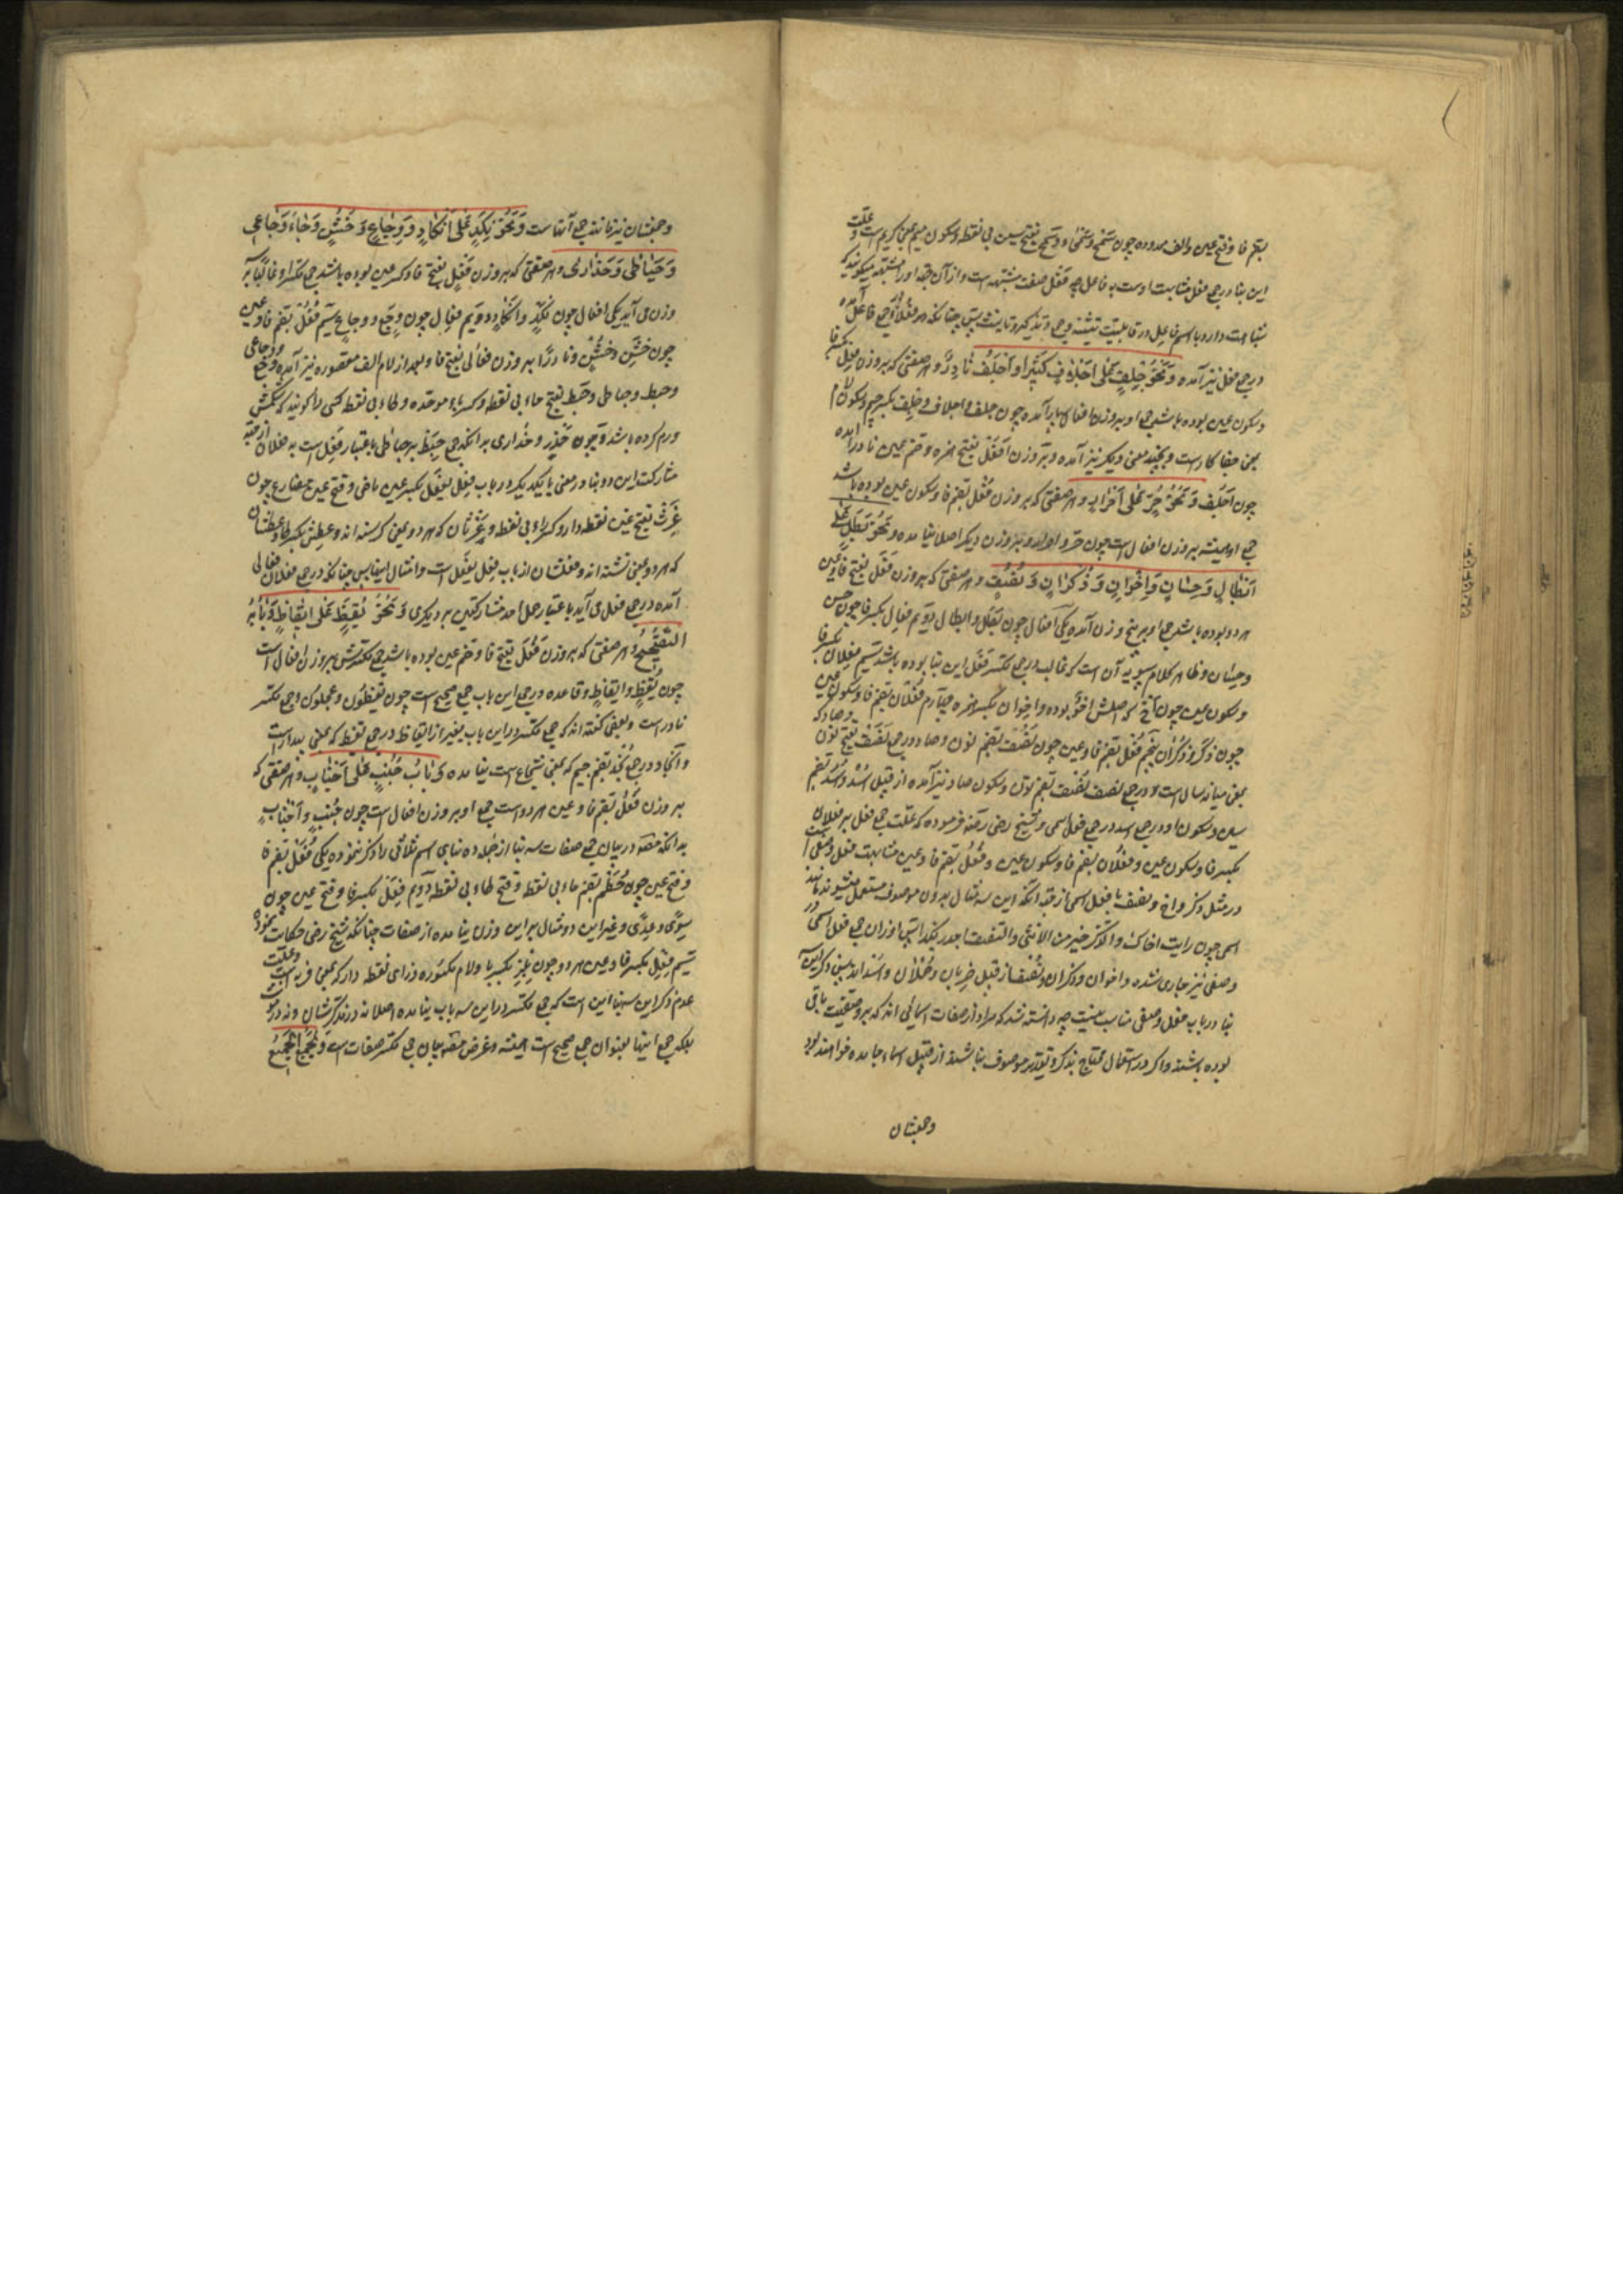 بضم فا و فتح عین والف ممدوده چون سَمْح وسُمَحاء و سمح بفتح سین بی نقطه وسکون میم بمعنی کریم است و علت
این بنا در جمع فعل مشابهت اوست به فاعل چه فَعْل صفت مشبهه است و از آن جهة او را مشبهه میگویند که
شباهت دارد با اسم فاعل در قابلیت تثنیه و جمع و تذکیر و تانیث پس چنانکه فعلاء در جمع فاعل آمده
در جمع فعل نیز آمده وَنَحْوُ جِلْفٍ عَلٰی اَجْلافٍ کَثِیراً وَ اَجْلُفٌ نٰادِرٌ و هر صفتی که بر وزن فِعْل بکسر فا
وسکون عین بوده باشد جمع او بر وزن افعال بسیار آمده چون جلف و اجلاف و جِلف بکسر جیم وسکون لام
بمعنی جفاکار است و بچند معنی دیگر نیز آمده و بر وزن اَفْعُل بفتح همزه و ضم عین نادراً آمده
چون اَجْلُف وَ نَحْوُ حُرٍّ عَلٰی اَحْرٰارٍ و هر صفتی که بر وزن فُعْل بضم فا وسکون عین بوده باشد
جمع او همیشه بر وزن افعال است چون حرّ و احرار و بر وزن دیگر اصلا نیامده و نَحْوُ بَطَلٍ عَلٰی
اَبْطٰالٍ وَ حِسٰانٍ وَ اِخْوٰانٍ وَ ذُکْرٰانٍ وَ نُصُفٍ و هر صفتی که بر وزن فَعَل بفتح فا و عین
هر دو بوده باشد جمع او بر پنج وزن آمده یکی اَفعال چون بَطَل و ابطال دوّیم فِعال بکسر فا چون حسن
وحسان و ظاهر کلام سیبویه آن است که غالب در جمع مکسر فَعَل این بنا بوده باشد سیّم فِعلان بکسر فا
وسکون عین چون اَخ که اصلش اَخَوٌ بوده و اِخوان بکسر همزه چهارم فُعْلان بضم فا وسکون عین
چون ذکر و ذُکران پنجم فُعُل بضم فا و عین چون نَصَف و نُصُف بضم نون و صاد در جمع نَصَف بفتح نون و صاد که
بمعنی میانه سال است و در جمع نصف نُصْف بضم نون وسکون صاد نیز آمده از قبیل اُسُد و اُسْد بضم
سین وسکون او در جمع اسد در جمع فعل اسمی و شیخ رضی رضه فرموده که علت جمع فعل بر فعلان
بکسر فا وسکون عین و فُعْلان بضم فا وسکون عین و فُعُل بضم فا و عین مشابهت فعل وصفی است
در مثل ذکر و اخ و نصف با فعل اسمی از جهة آنکه این سه مثال بدون موصوف مستعمل میشوند مانند
اسمی چون رایت اخاک و الذکر خیر من الانثی و النصف اجدر بکذا پس اوزان جمع فعل اسمی در
وصفی نیز جاری شده و اخوان و ذکران و نُصُف از قبیل خِربان و حُملان و اُسُد اند پس ذکر این
بنا در باب فعل وصفی مناسب نیست چه دانسته شد که مراد از صفات اسمائی اند که بر وصفیت باقی
بوده باشند و اگر در استعمال محتاج بذکر و تقدیر موصوف نباشند از قبیل اسماء جامده خواهند بود
وجعبشان
وجعبشان نیز مانند جمع آنهاست وَنَحْوُ نَکِدٍ عَلٰی اَنْکٰادٍ وَ وِجٰاعٍ وَ خُشُنٍ وَ جٰاءَ وَجٰاعٰی
وَ حَبٰاطٰی وَ حَذٰارٰی و هر صفتی که بر وزن فَعِل بفتح فا و کسر عین بوده باشد جمع مکسر او غالباً بر سه
وزن می آید یکی افعال چون نَکِد و انکاد و دویم فِعال چون وَجِع و وِجاع سیّم فُعُل بضم فا و عین
چون خَشِن و خُشُن و نادراً بر وزن فَعالی بفتح فا و بعد از لام الف مقصوره نیز آمده وجع و وجاعی
وحبط وحباطی وحَبِط بفتح حاء بی نقطه و کسر باء موحده و طاء بی نقط کسی را گویند که شکمش
ورم کرده باشد و چون حَذِر و حَذاری بدانکه جمع حَبِط بر حباطی باعتبار حمل است به فعلان از جهة
مشارکت این دو بنا در معنی با یکدیگر در باب فَعِل یَفْعَل بکسر عین ماضی و فتح عین مضارع چون
غَرِث بفتح غین نقطه دار و کسر راء بی نقطه و غَرْثان که هر دو بمعنی گرسنه اند و عطش بکسر طا و عطشان
که هر دو بمعنی تشنه اند و فعلشان از باب فَعِل یَفْعَل است و امثال اینها پس چنانکه در جمع فعلان فَعالی
آمده در جمع فعل می آید باعتبار حمل احد مشارکتین بر دیگری وَ نَحْوُ یَقُظٍ عَلٰی اَیْقٰاظٍ وَ بٰابُهُ
التَّصْحیحُ و هر صفتی که بر وزن فَعُل بفتح فا و ضم عین بوده باشد جمع مکسرش بر وزن افعال است
چون یَقُظ و ایقاظ و قاعده در جمع این باب جمع صحیح است چون یَقُظُون و عَجُلون و جمع مکسر
نادر است و بعضی گفته اند که جمع مکسر در این باب بغیر از ایقاظ در جمع یقظ که بمعنی بیدار است
و انجاد در جمع نَجُد بضم جیم که بمعنی شجاع است نیامده وَ بٰابُ جُنُبٍ عَلٰی اَجْنٰابٍ و هر صفتی که
بر وزن فُعُل بضم فا و عین هر دو است جمع او بر وزن افعال است چون جُنُب و اَجْنٰاب
بدانکه مصنف در بیان جمع صفات سه بنا از جمله ده بنای اسم ثلاثی را ذکر ننموده یکی فُعَل بضم فا
و فتح عین چون حُطَم بضم حاء بی نقط و فتح طاء بی نقطه دویم فِعَل بکسر فا و فتح عین چون
سِوًی و عِدًی و غیر این دو مثال بر این وزن نیامده از صفات چنانکه شیخ رضی حکایت نموده
سیّم فِعِل بکسر فا و عین هر دو چون بِلِز بکسر با و لام مکسوره و زای نقطه دار که بمعنی فربه است و علت
عدم ذکر این سه بنا این است که جمع مکسر در این سه باب نیامده اصلا نه در مذکرشان و نه در مؤنث
بلکه جمع اینها بعنوان جمع صحیح است همیشه و غرض مصنف بیان جمع مکسر صفات است وَ یُجْمَعُ الْجَمیعُ